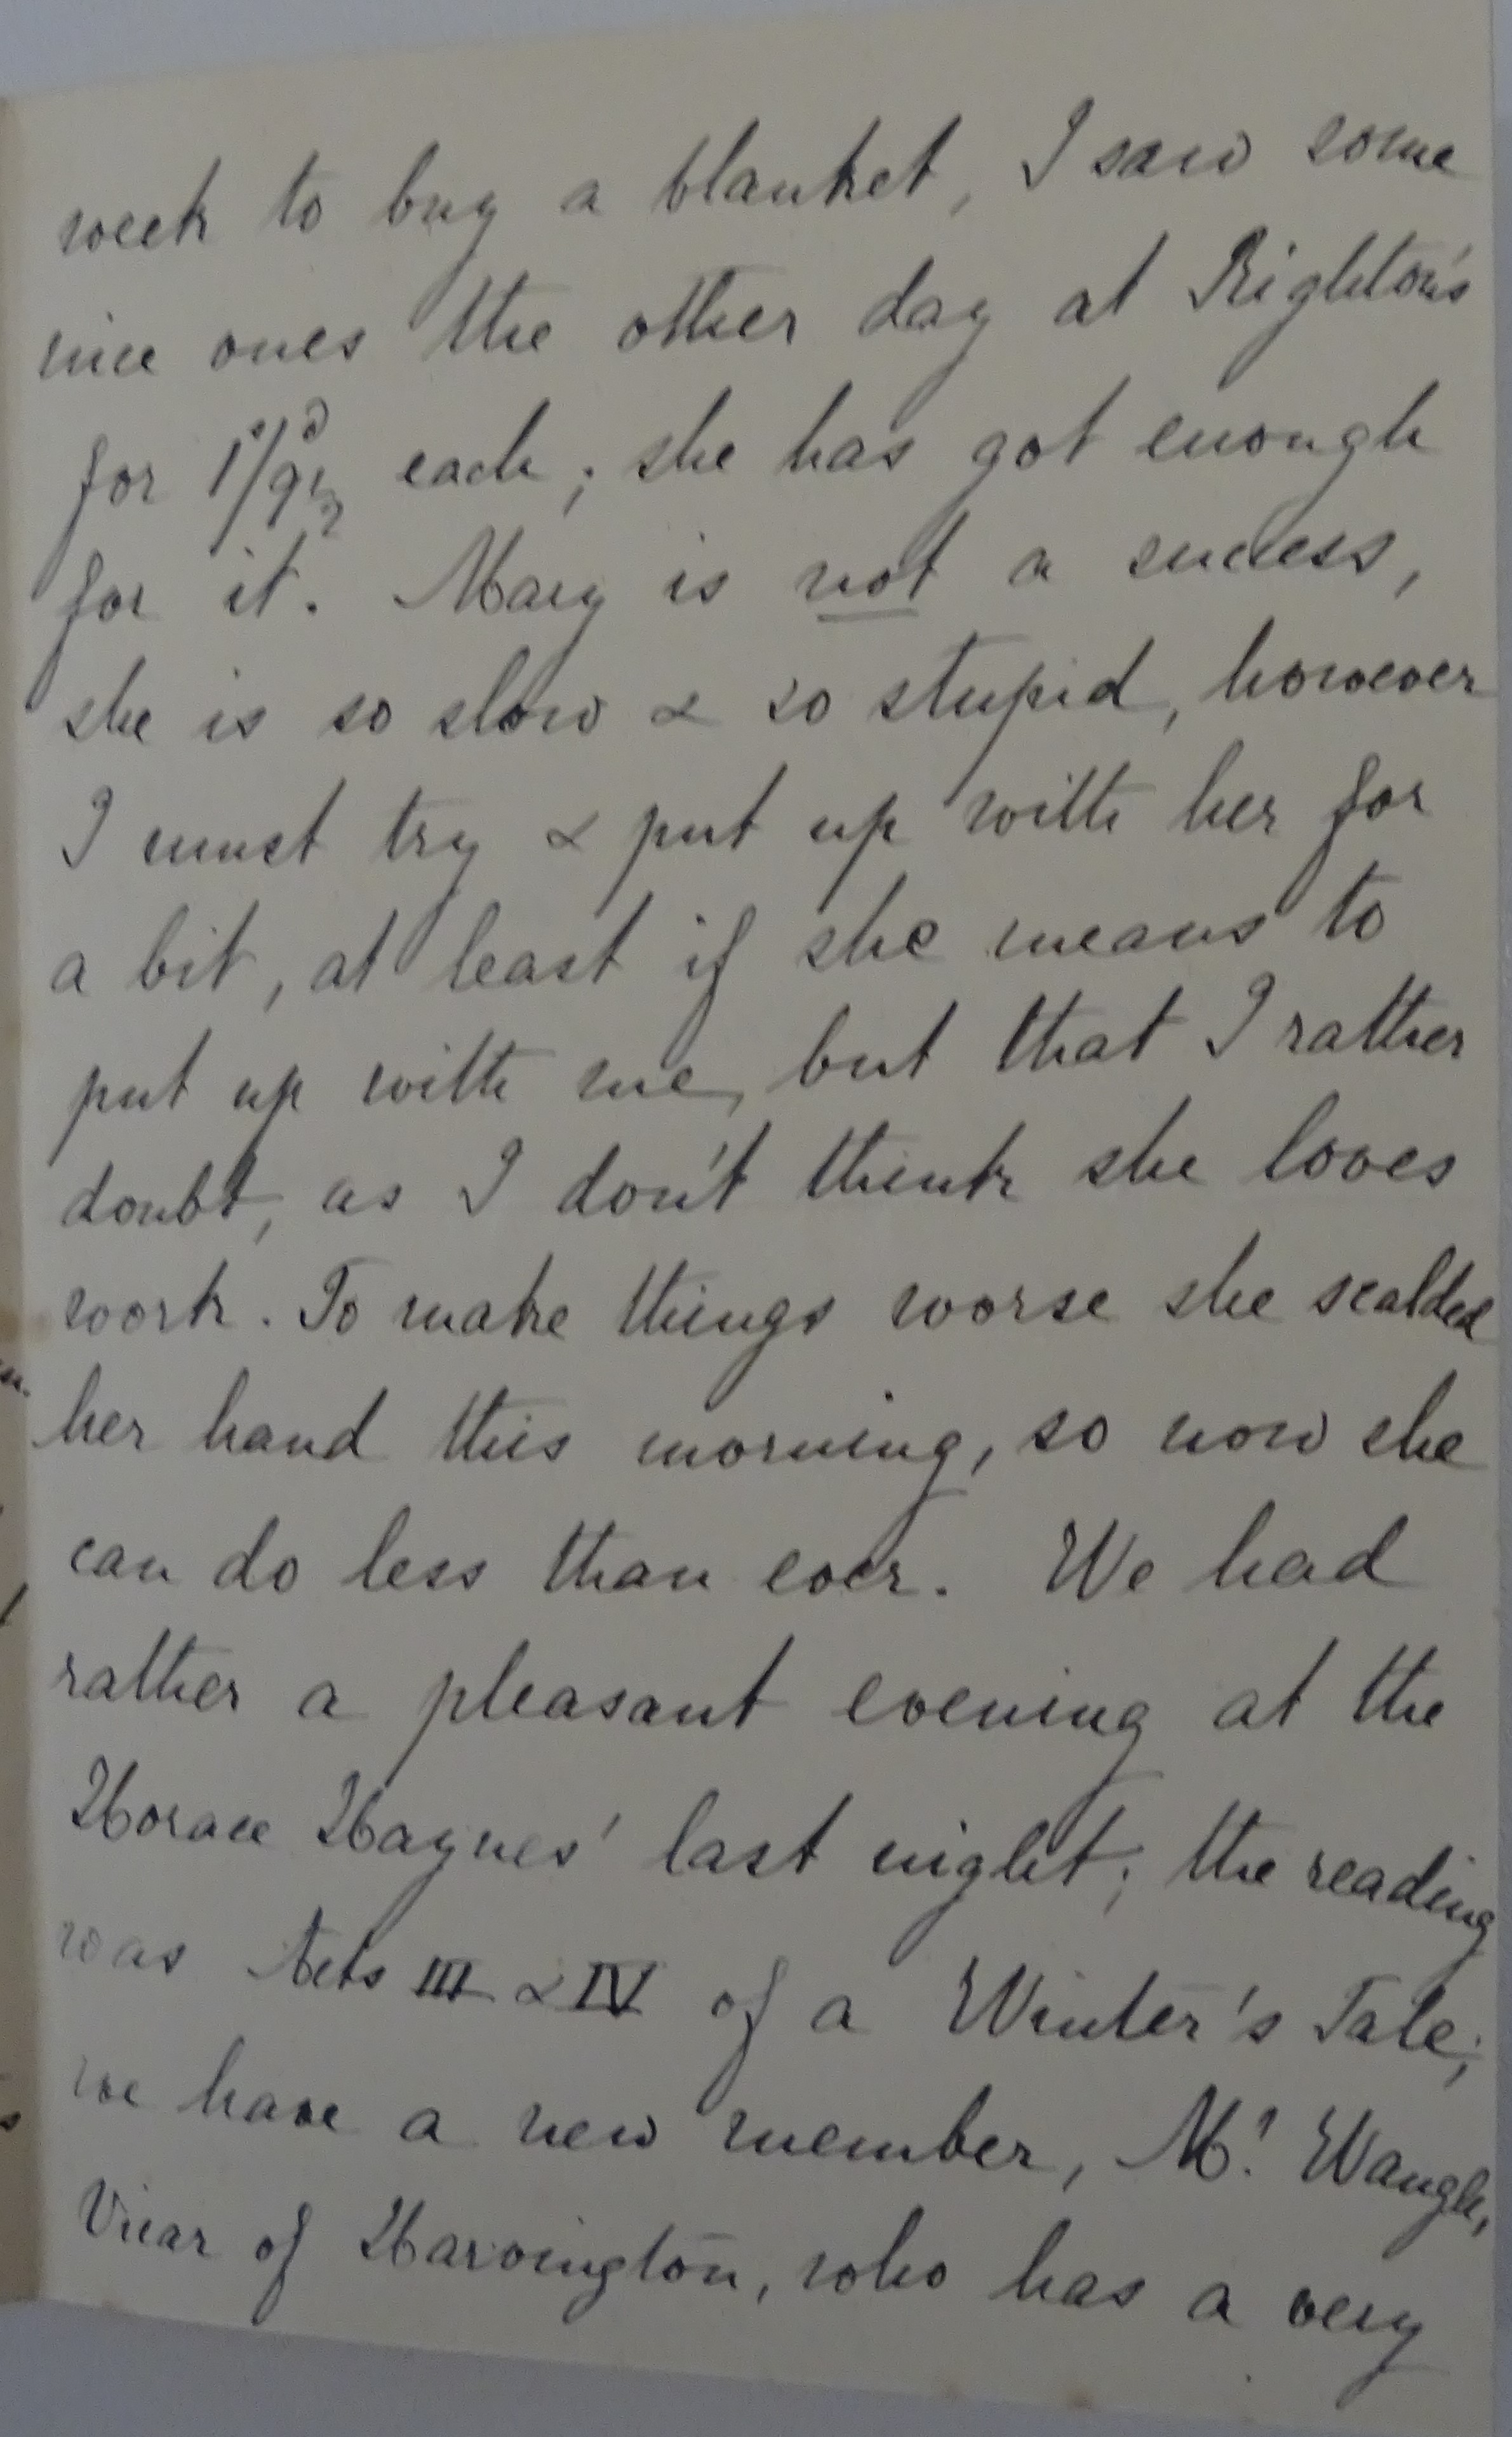 week to buy a blanket, I saw some
nice ones the other day at Righton's
for 1s/9½d each; she has got enough
for it. Mary is not a success,
she is so slow & so stupid, however
I must try & put up with her for
a bit, at least if she means to
put up with me, but that I rather
doubt, as I don't think she loves
work. To make things worse she scalded
her hand this morning, so now she
can do less than ever. We had
rather a pleasant evening at the
Horace Haynes' last night; the reading
was Acts III & IV of a Winter's Tale;
we have a new member, Mr. Waugh,
Vicar of Harvington, who has a very